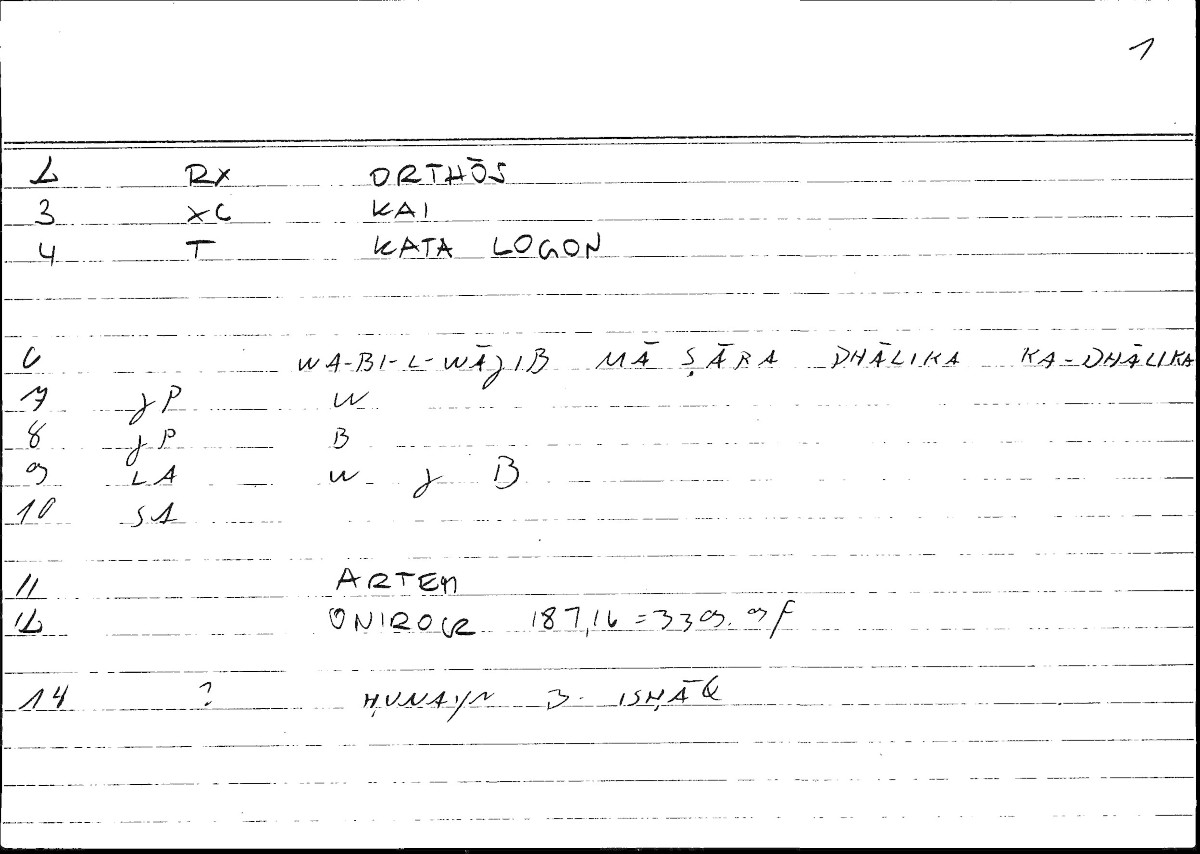 1
2 RX ORTHŌS
3 XC KAI
4 T KATA LOGON
6 WA-BI-L-WĀJIB MĀ ṢĀRA DHĀLIKA KA-DHĀLIKA
7 JP W
8 JP B
9 LA W J B
10 S1
11 ARTEM
12 ONIROCR 187,16 = 339.9f
14 ? ḤUNAYN B. ISḤĀQ